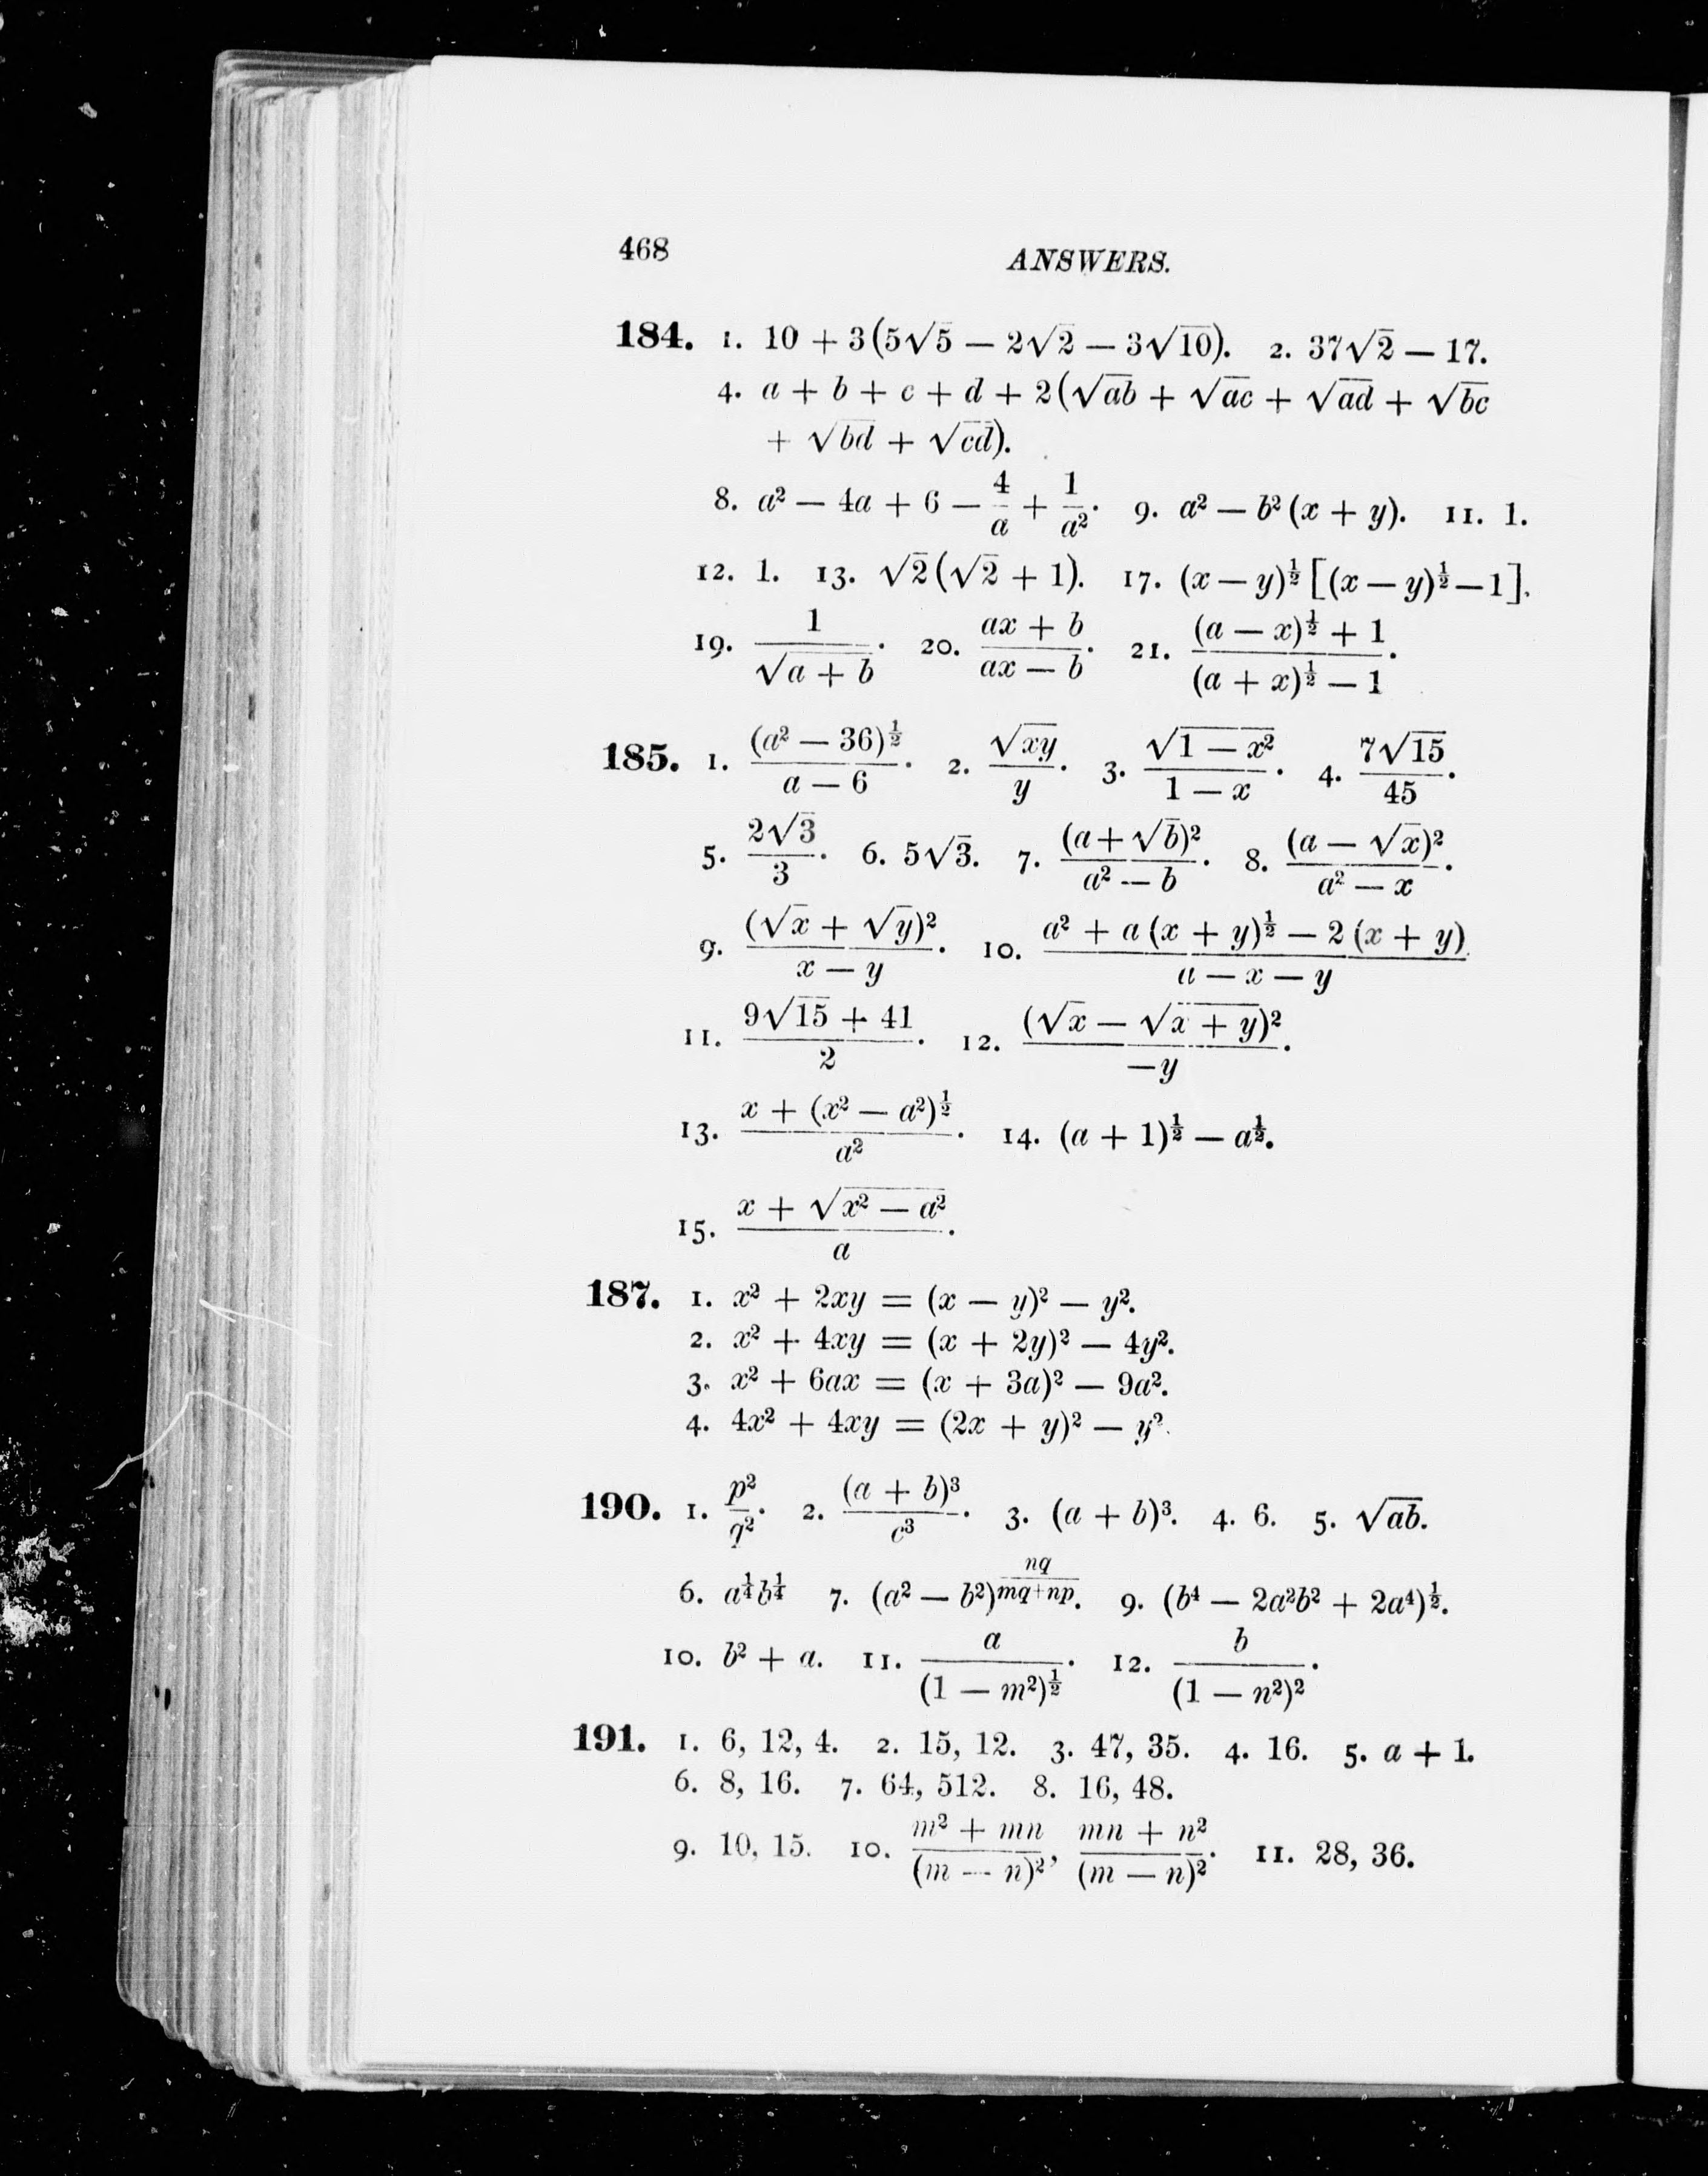 468 ANSWERS.
184. 1. 10 + 3(5√5 − 2√2 − 3√10). 2. 37√2 − 17.
4. a + b + c + d + 2(√ab + √ac + √ad + √bc
+ √bd + √cd).
8. a² − 4a + 6 − 4/a + 1/a². 9. a² − b²(x + y). 11. 1.
12. 1. 13. √2(√2 + 1). 17. (x − y)^½ [(x − y)^½ − 1].
19. 1/√(a + b). 20. (ax + b)/(ax − b). 21. ((a − x)^½ + 1)/((a + x)^½ − 1).
185. 1. (a² − 36)^½/(a − 6). 2. √xy/y. 3. √(1 − x²)/(1 − x). 4. 7√15/45.
5. 2√3/3. 6. 5√3. 7. (a + √b)²/(a² − b). 8. (a − √x)²/(a² − x).
9. (√x + √y)²/(x − y). 10. (a² + a(x + y)^½ − 2(x + y))/(a − x − y).
11. (9√15 + 41)/2. 12. (√x − √(x + y))²/−y.
13. (x + (x² − a²)^½)/a². 14. (a + 1)^½ − a^½.
15. (x + √(x² − a²))/a.
187. 1. x² + 2xy = (x − y)² − y².
2. x² + 4xy = (x + 2y)² − 4y².
3. x² + 6ax = (x + 3a)² − 9a².
4. 4x² + 4xy = (2x + y)² − y².
190. 1. p²/q². 2. (a + b)³/c³. 3. (a + b)³. 4. 6. 5. √ab.
6. a^¼b^¼ 7. (a² − b²)^(nq/(mq+np)). 9. (b⁴ − 2a²b² + 2a⁴)^½.
10. b² + a. 11. a/(1 − m²)^½. 12. b/(1 − n²)².
191. 1. 6, 12, 4. 2. 15, 12. 3. 47, 35. 4. 16. 5. a + 1.
6. 8, 16. 7. 64, 512. 8. 16, 48.
9. 10, 15. 10. (m² + mn)/(m − n)², (mn + n²)/(m − n)². 11. 28, 36.